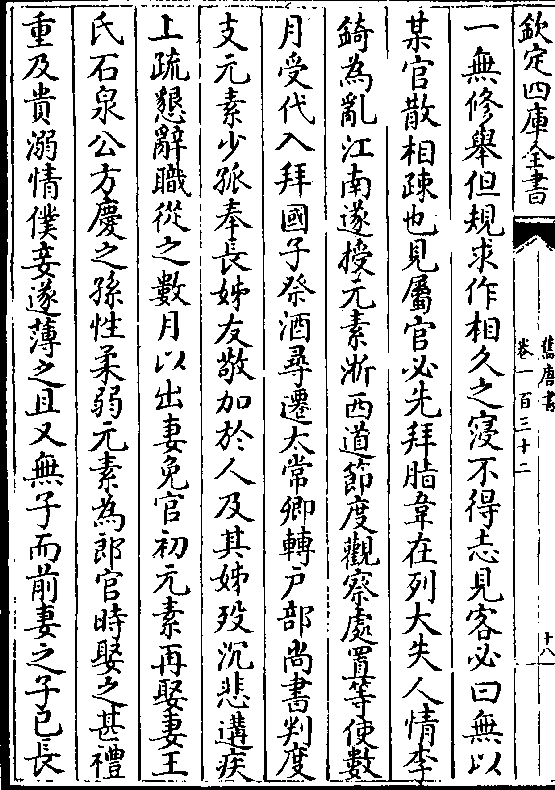 欽定四庫全書
舊唐書
卷一百三十二
十八
一無修舉但規求作相久之寖不得志見客必曰無以
某官散相疎也見屬官必先拜脂韋在列大失人情李
錡為亂江南遂授元素浙西道節度觀察處置等使數
月受代入拜國子祭酒尋遷太常卿轉戸部尚書判度
支元素少孤奉長姊友敬加於人及其姊殁沉悲遘疾
上疏懇辭職從之數月以出妻免官初元素再娶妻王
氏石泉公方慶之孫性柔弱元素為郎官時娶之甚禮
重及貴溺情僕妾遂薄之且又無子而前妻之子已長